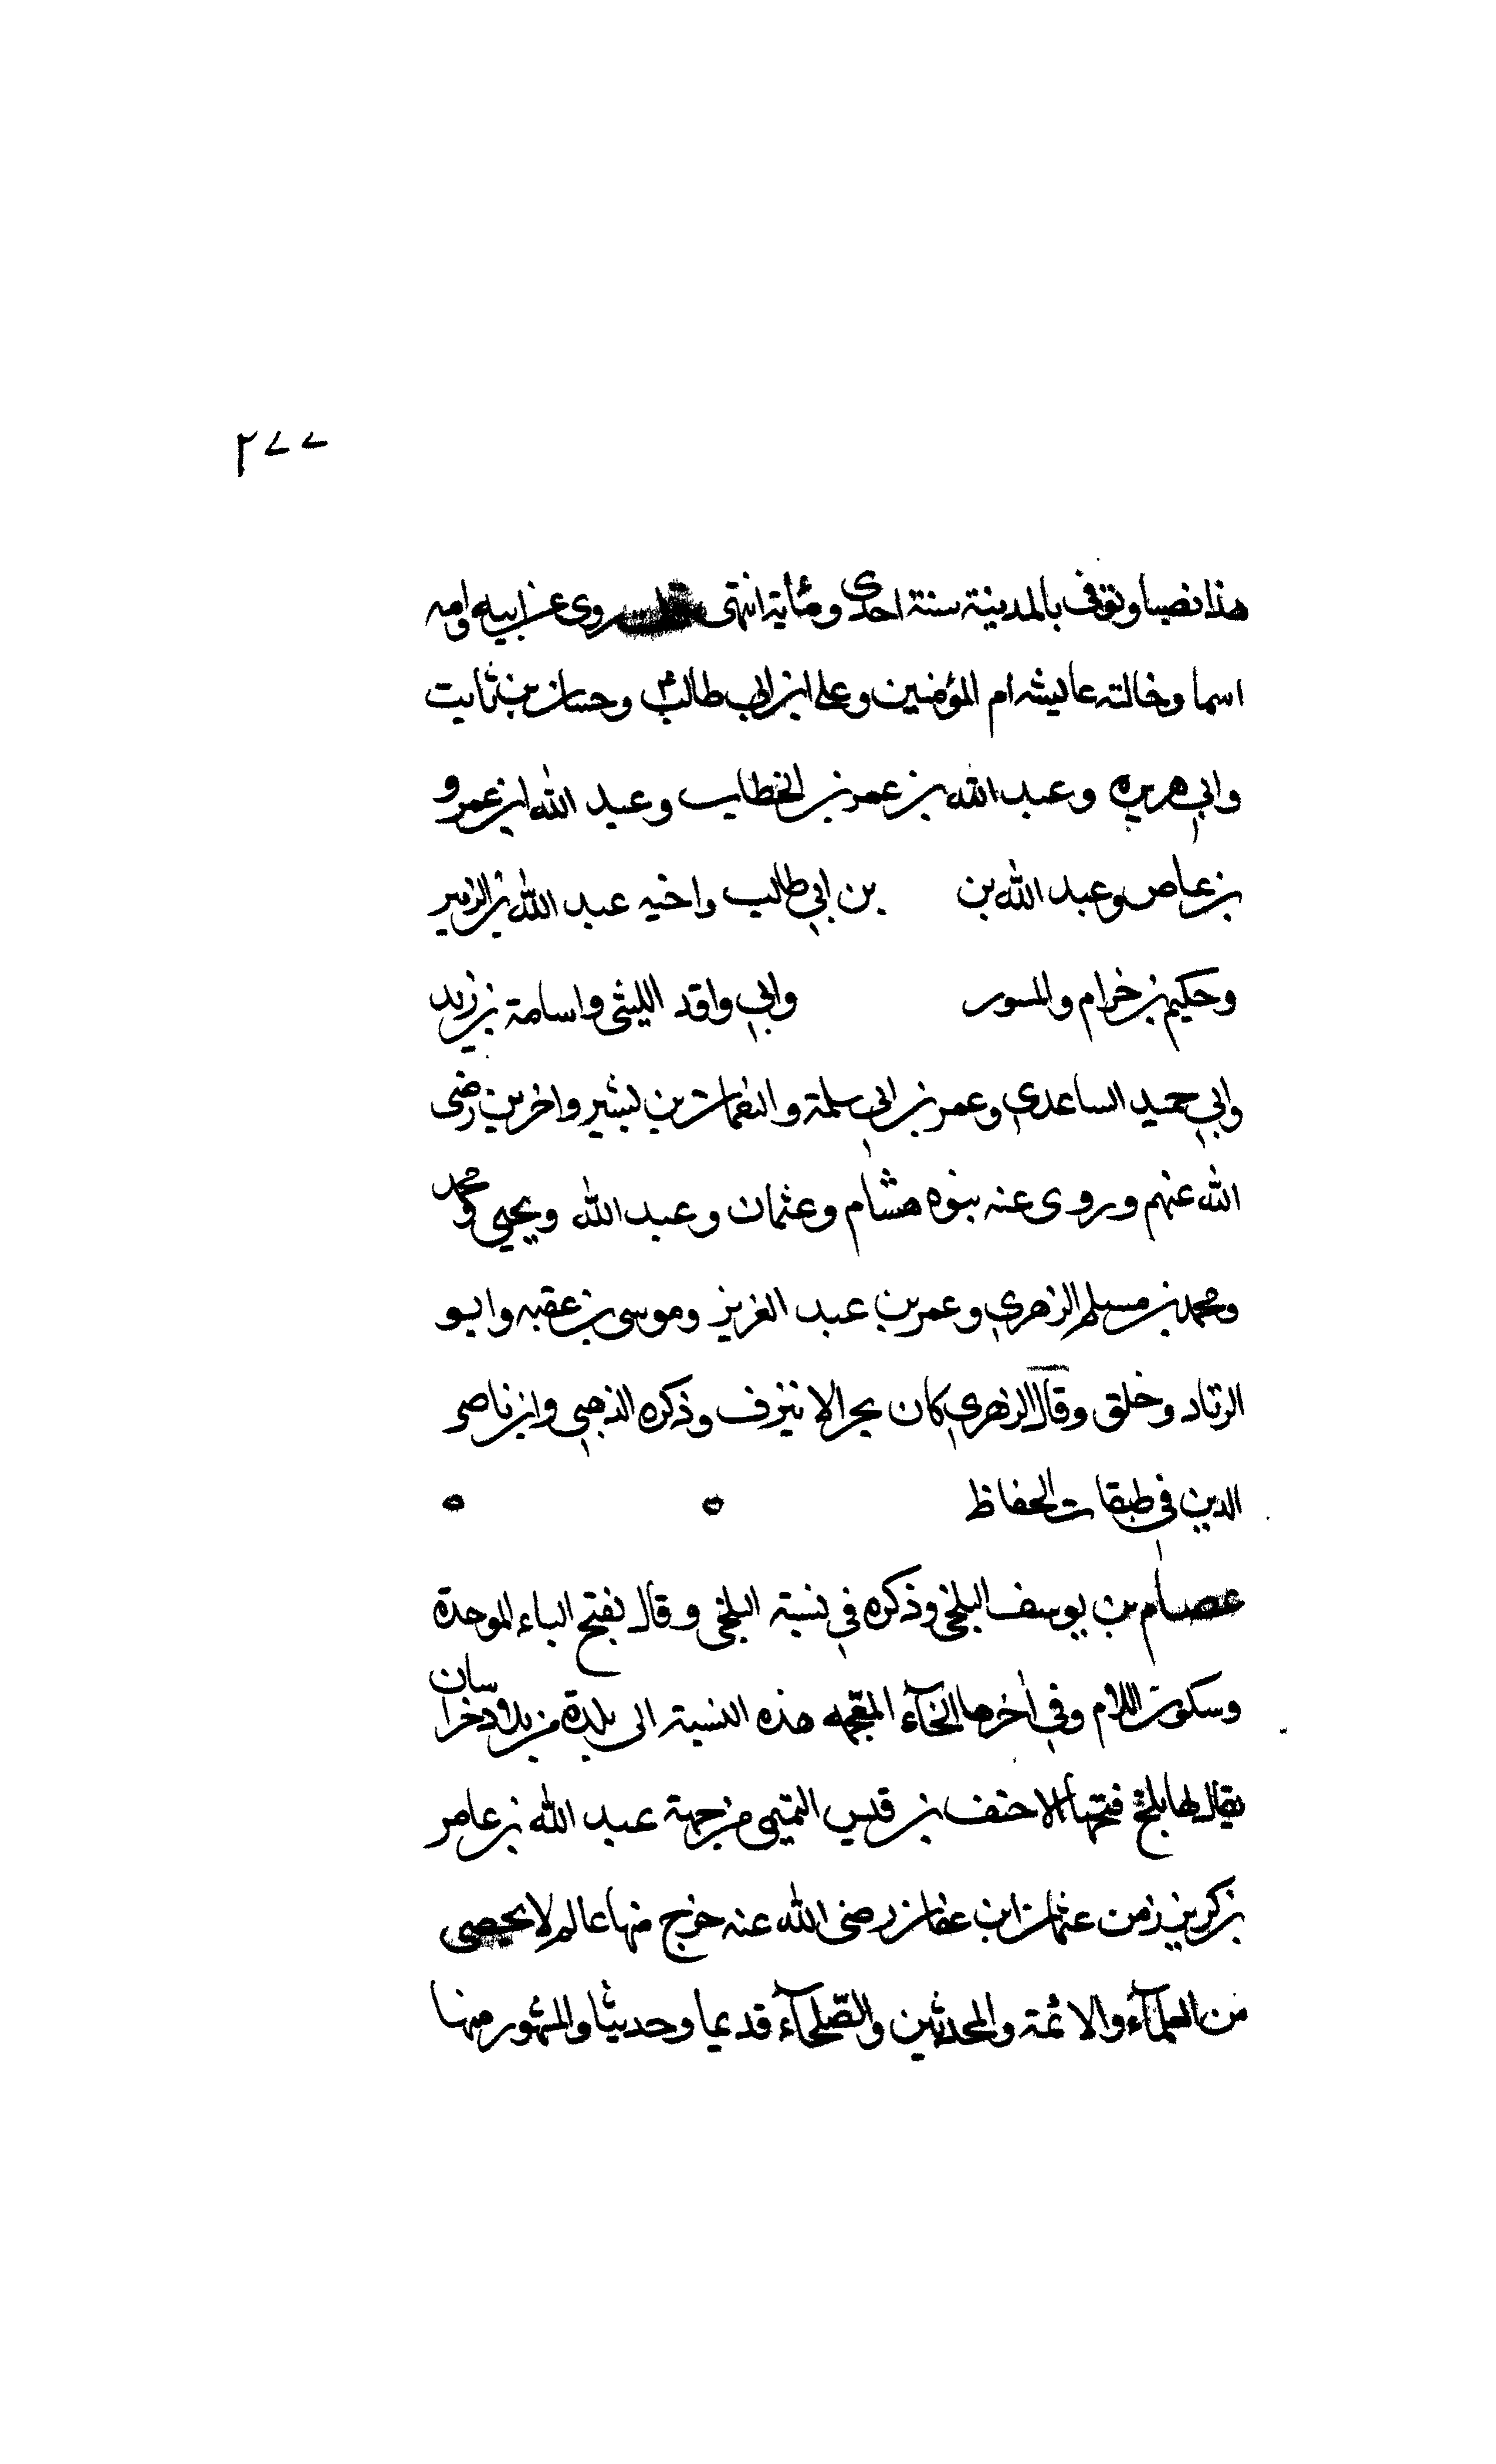 ٢٧٧
هذا نصبا وتوفى بالمدينة سنة احدى ومئاية انتهى روى عن ابيه وامه
اسما وخالته عايشه ام المؤمنين وعلى ابن ابي طالب وحسان بن ثابت
وابي هريره وعبد الله بن عمر بن الخطاب وعبد الله ابن عمرو
بن عاص وعبد الله بن بن ابي طالب واخيه عبد الله بن الزبير
وحكيم بن خرام والمسور وابي واقد الليثي واسامة بن زيد
وابي حميد الساعدي وعمر بن ابي سلمة والنعمان بن بشير واخرين رضى
الله عنهم وروى عنه بنوه هشام وعثمان وعبد الله ويحيى ومحمد
ومحمد بن مسلم الزهري وعمر بن عبد العزيز وموسى بن عقبه وابو
الزناد وخلق وقال الزهري كان بحرا لا ينزف وذكره الذهبي وابن ناصر
الدين في طبقات الحفاظ
عصام بن يوسف البلخي وذكره في نسبة البلخي وقال بفتح الباء الموحدة
وسكون اللام وفي اخرها الخآء المعجمه هذه النسبة الى بلدة من بلاد خراسان
يقال لها بلخ فتحها الاحنف بن قيس التميمى من جهة عبد الله بن عامر
بن كريز زمن عثمان ابن عفان رضى الله عنه خرج منها عالم لا يحصى
من العلمآء والائمة والمحدثين والصّلحآء قديما وحديثا والمشهور منها